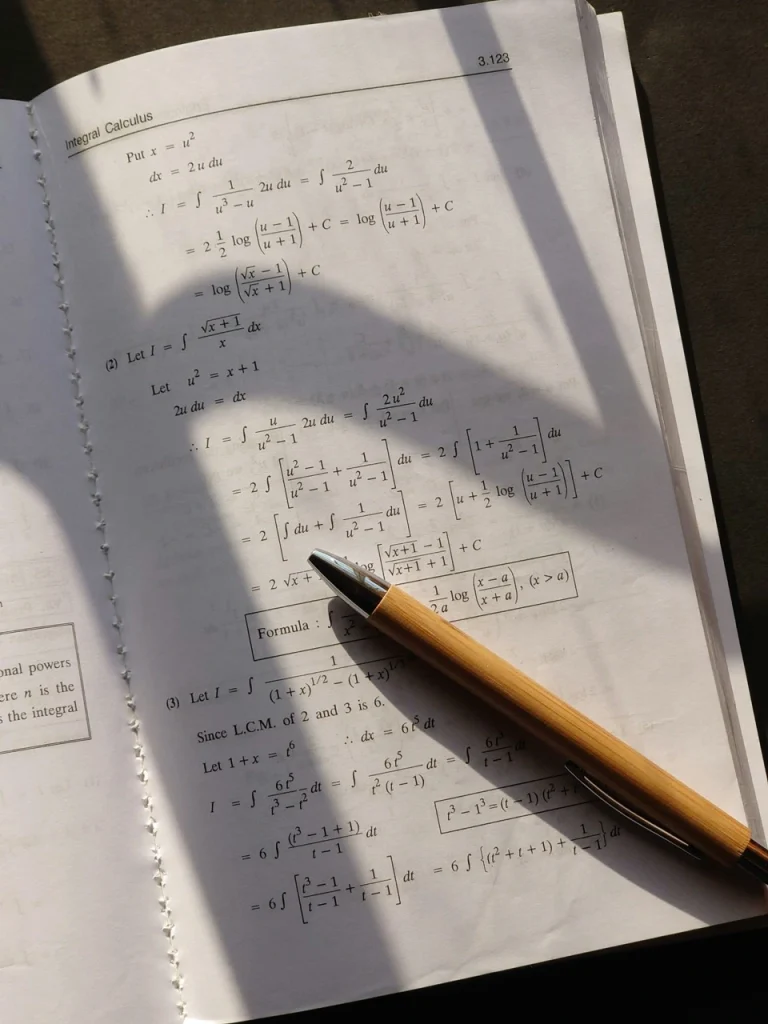 3.123
Integral Calculus
Put x = u²
dx = 2u du
∴ I = ∫ 1/(u³ − u) 2u du = ∫ 2/(u² − 1) du
= 2 1/2 log ((u − 1)/(u + 1)) + C = log ((u − 1)/(u + 1)) + C
= log ((√x − 1)/(√x + 1)) + C
(2) Let I = ∫ √(x + 1)/x dx
Let u² = x + 1
2u du = dx
∴ I = ∫ u/(u² − 1) 2u du = ∫ 2u²/(u² − 1) du
= 2 ∫ [(u² − 1)/(u² − 1) + 1/(u² − 1)] du = 2 ∫ [1 + 1/(u² − 1)] du
= 2 [∫ du + ∫ 1/(u² − 1) du] = 2 [u + 1/2 log ((u − 1)/(u + 1))] + C
= 2 √x + [(√x+1 − 1)/(√x+1 + 1)] + C
Formula : ∫ 1/2a log ((x − a)/(x + a)), (x > a)
(3) Let I = ∫ 1/((1 + x)^1/2 − (1 + x)^1/
Since L.C.M. of 2 and 3 is 6.
Let 1 + x = t⁶ ∴ dx = 6t⁵ dt
I = ∫ 6t⁵/(t³ − t²) dt = ∫ 6t⁵/(t² (t − 1)) dt = ∫ 6t³/(t − 1) dt
= 6 ∫ (t³ − 1 + 1)/(t − 1) dt
t³ − 1³ = (t − 1) (t² +
= 6 ∫ [(t³ − 1)/(t − 1) + 1/(t − 1)] dt = 6 ∫ {(t² + t + 1) + 1/(t − 1)} dt
onal powers
ere n is the
s the integral